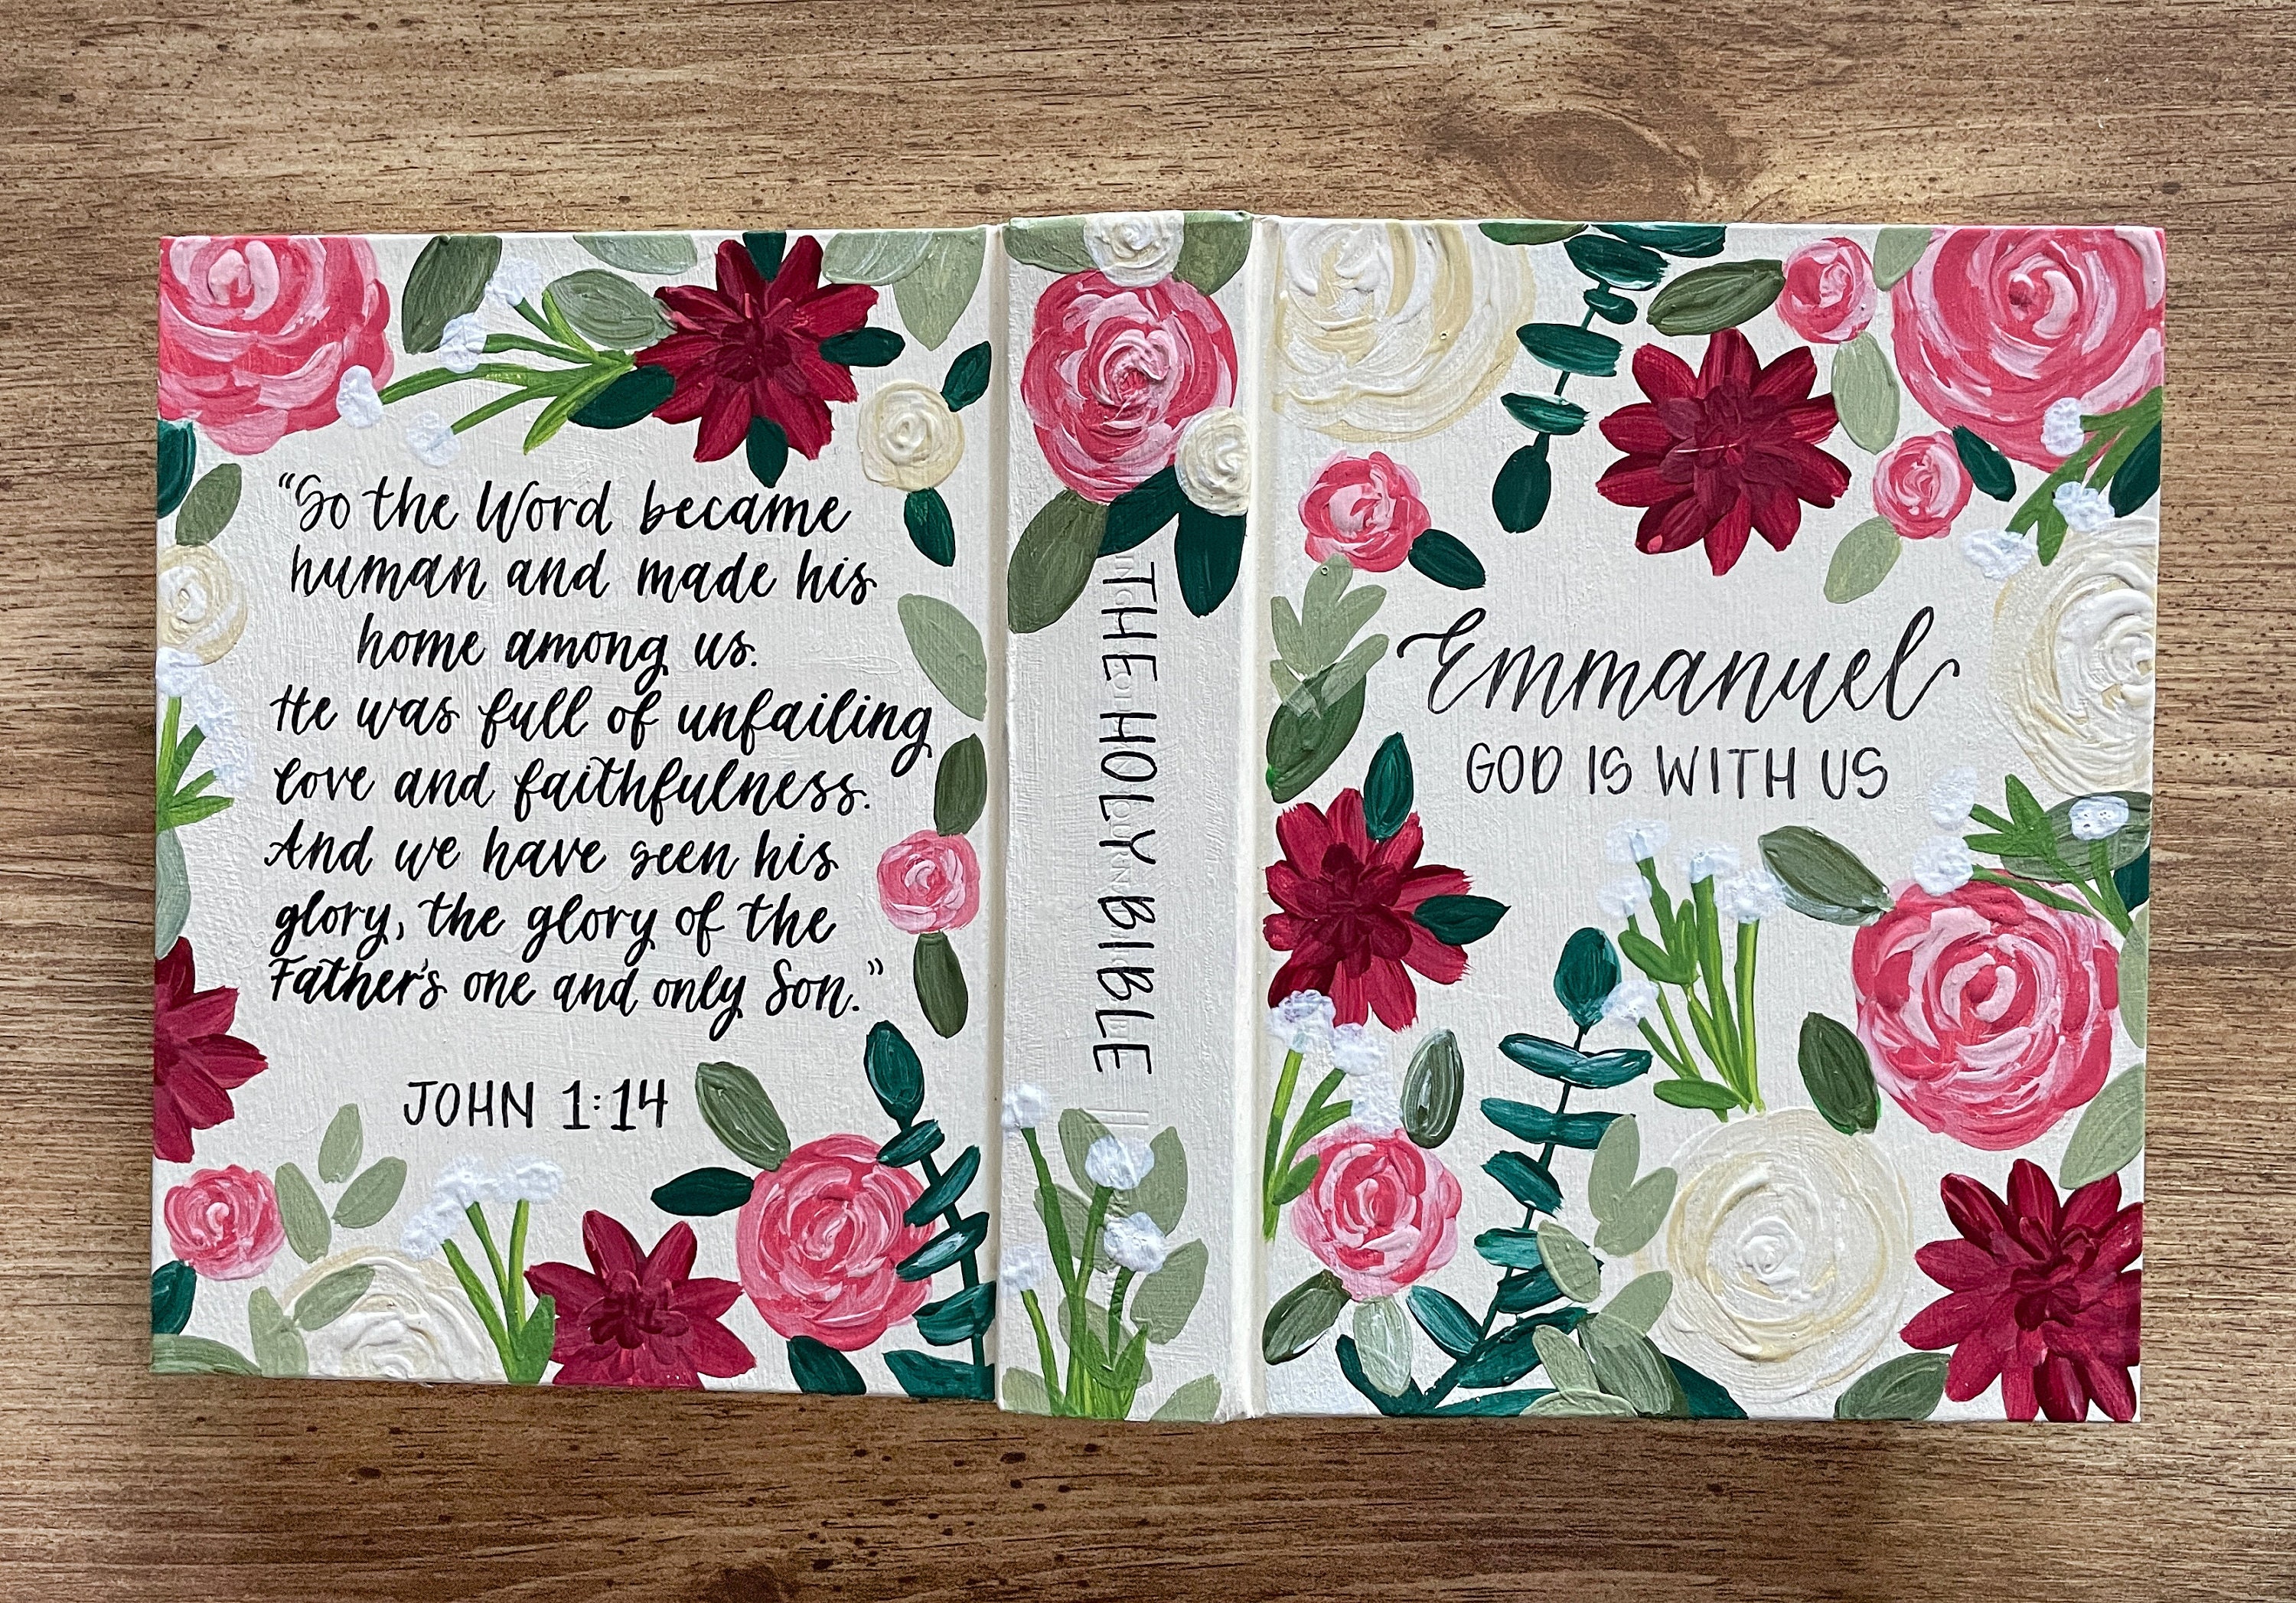 “So the Word became
human and made his
home among us.
He was full of unfailing
love and faithfulness.
And we have seen his
glory, the glory of the
Father's one and only Son.”
JOHN 1:14
THE HOLY BIBLE
Emmanuel
GOD IS WITH US